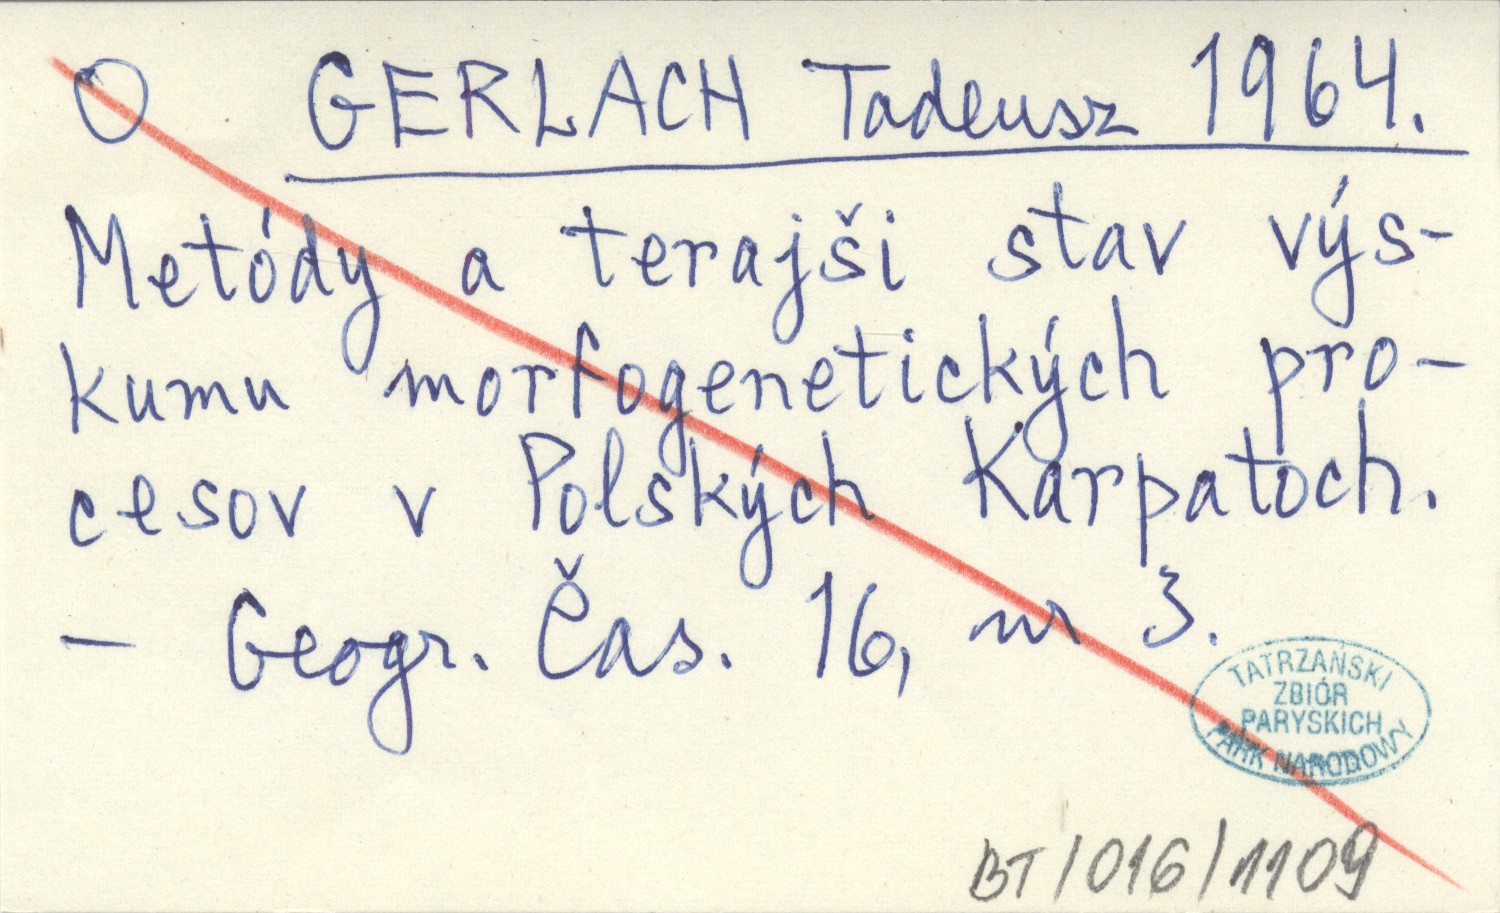 O GERLACH Tadeusz 1964.
Metódy a terajši stav výs-
kumu morfogenetických pro-
cesov v Polských Karpatoch.
— Geogr. Čas. 16, nr 3.
TATRZAŃSKI
ZBIÓR
PARYSKICH
PARK NARODOWY
BT/016/1109